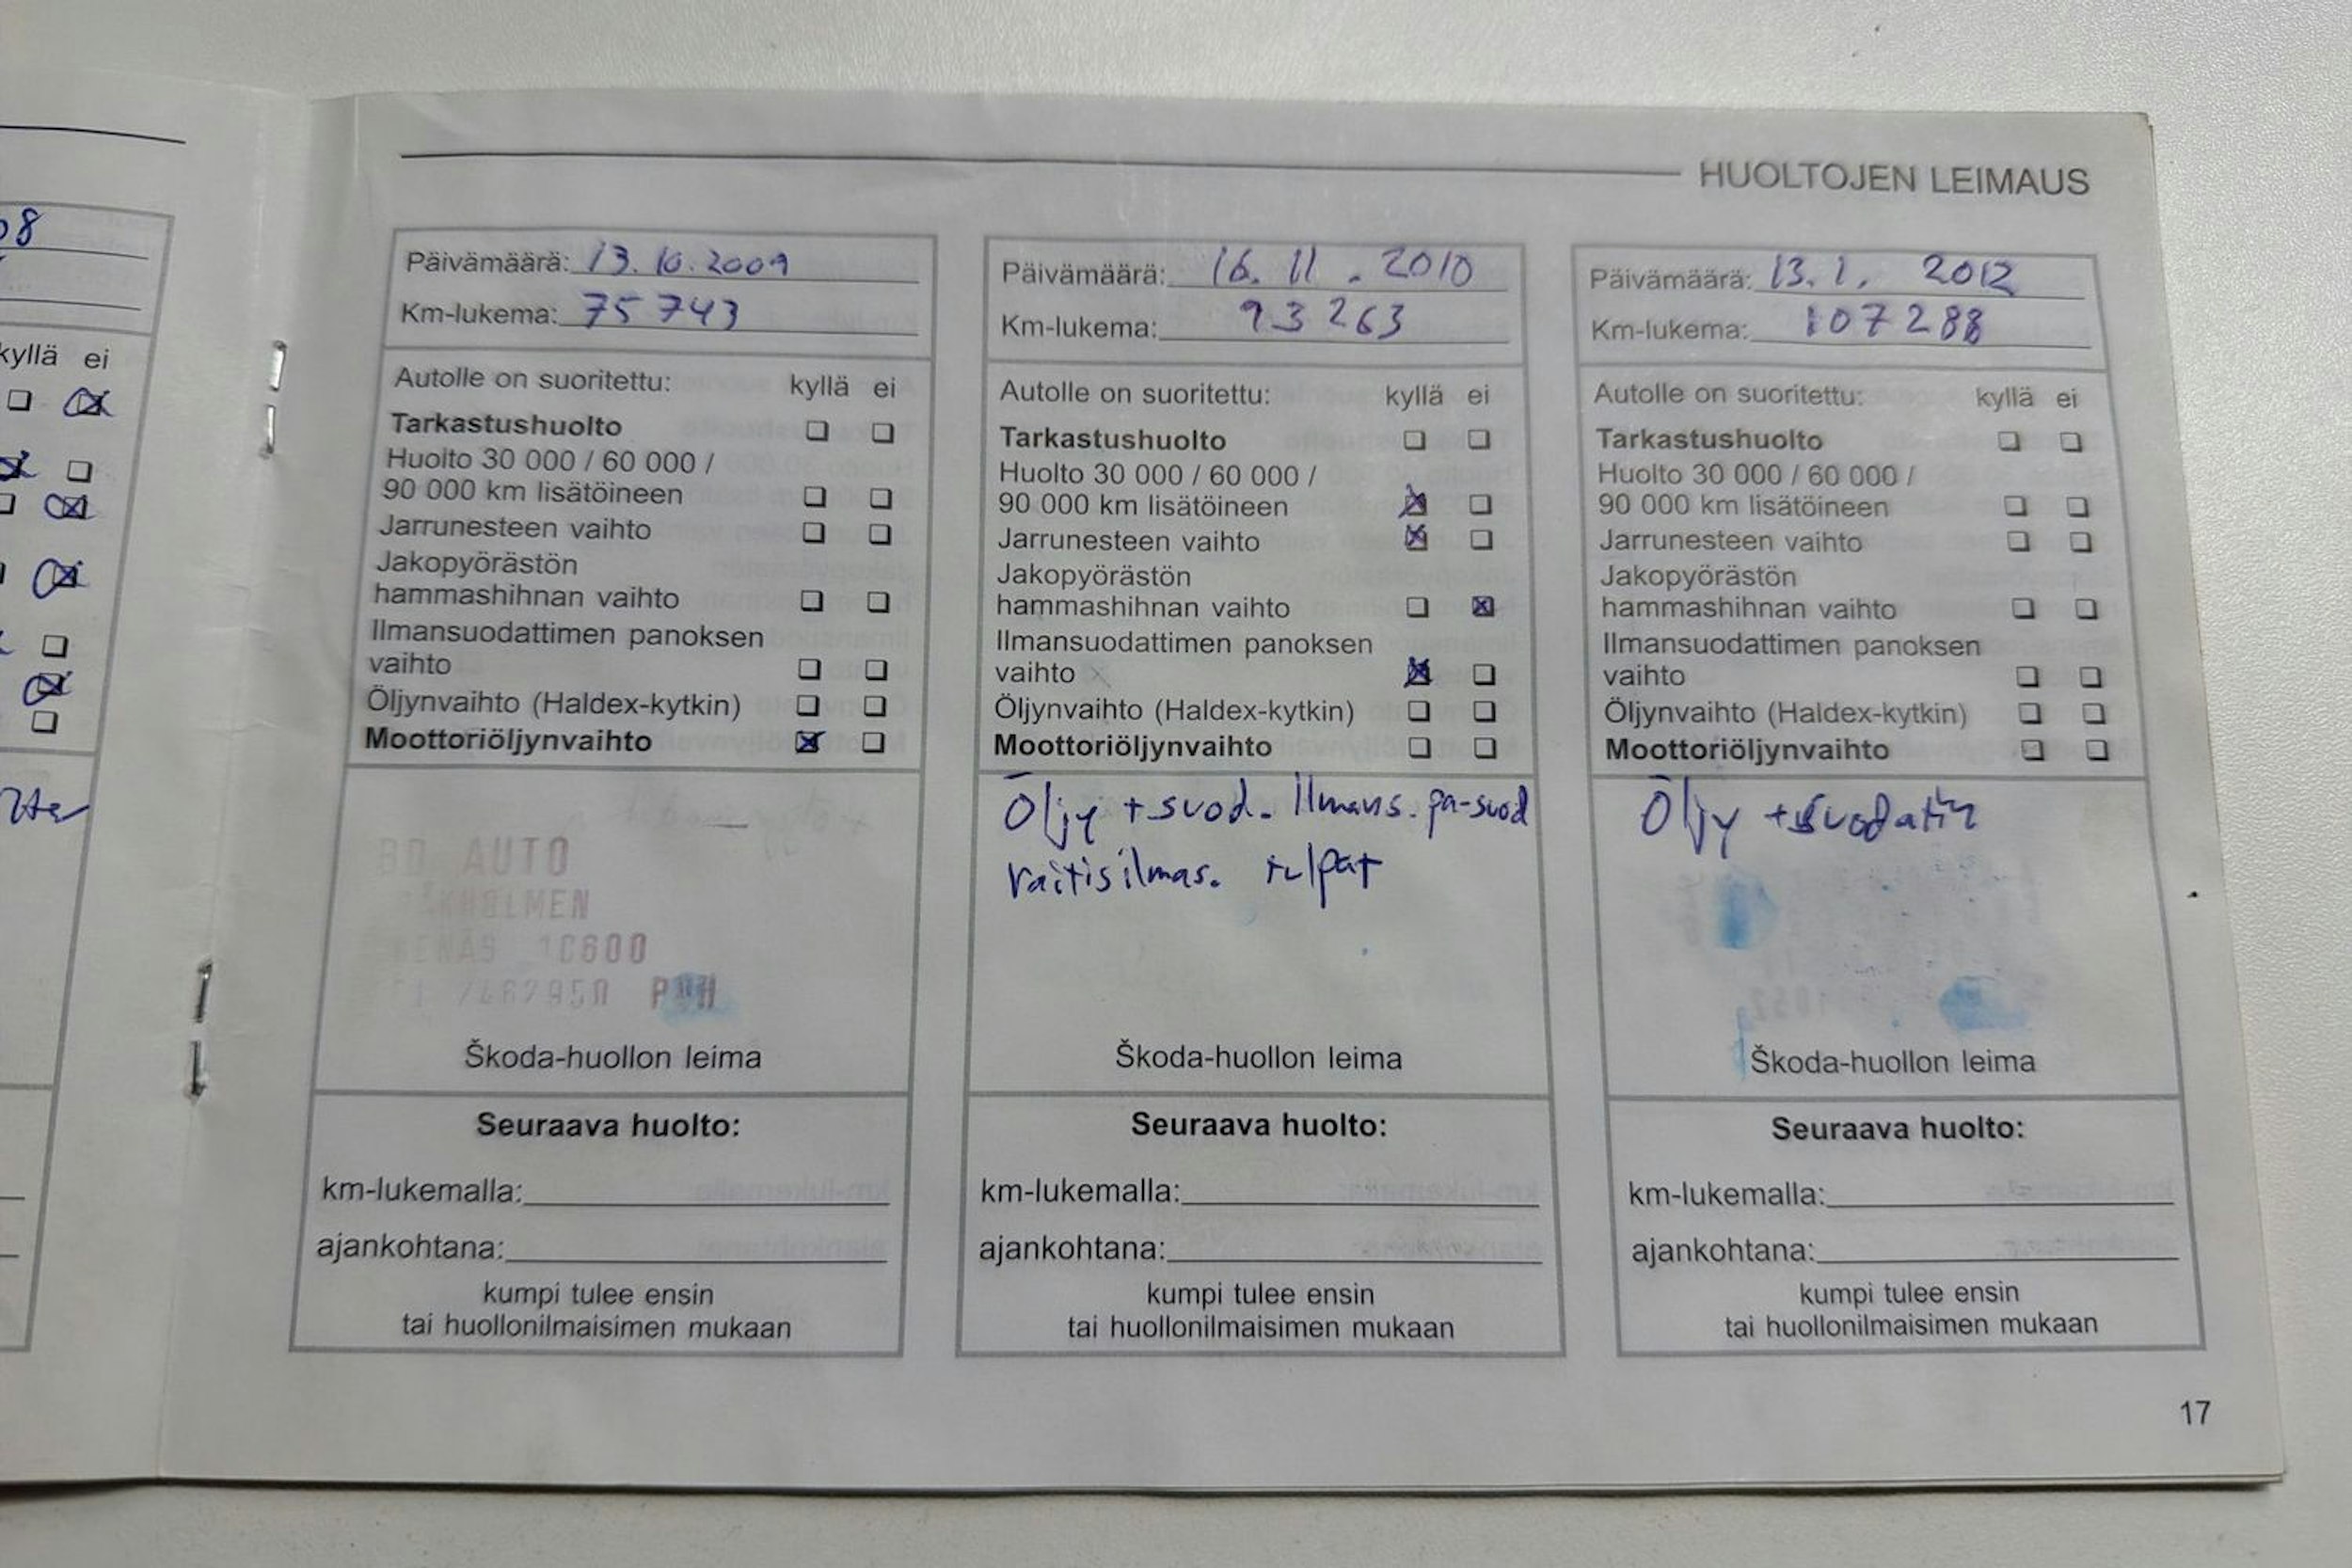 08
kyllä ei
HUOLTOJEN LEIMAUS
Päivämäärä: 13.10.2009
Km-lukema: 75 743
Autolle on suoritettu: kyllä ei
Tarkastushuolto
Huolto 30 000 / 60 000 /
90 000 km lisätöineen
Jarrunesteen vaihto
Jakopyörästön
hammashihnan vaihto
Ilmansuodattimen panoksen
vaihto
Öljynvaihto (Haldex-kytkin)
Moottoriöljynvaihto
AUTO
10600
Škoda-huollon leima
Seuraava huolto:
km-lukemalla:
ajankohtana:
kumpi tulee ensin
tai huollonilmaisimen mukaan
Päivämäärä: 16. 11 . 2010
Km-lukema: 93 263
Autolle on suoritettu: kyllä ei
Tarkastushuolto
Huolto 30 000 / 60 000 /
90 000 km lisätöineen
Jarrunesteen vaihto
Jakopyörästön
hammashihnan vaihto
Ilmansuodattimen panoksen
vaihto
Öljynvaihto (Haldex-kytkin)
Moottoriöljynvaihto
Öljy + suod. Ilmans. pa-suod
raitisilmas. tulpat
Škoda-huollon leima
Seuraava huolto:
km-lukemalla:
ajankohtana:
kumpi tulee ensin
tai huollonilmaisimen mukaan
Päivämäärä: 13. 1. 2012
Km-lukema: 107 288
Autolle on suoritettu: kyllä ei
Tarkastushuolto
Huolto 30 000 / 60 000 /
90 000 km lisätöineen
Jarrunesteen vaihto
Jakopyörästön
hammashihnan vaihto
Ilmansuodattimen panoksen
vaihto
Öljynvaihto (Haldex-kytkin)
Moottoriöljynvaihto
Öljy + suodatin
Škoda-huollon leima
Seuraava huolto:
km-lukemalla:
ajankohtana:
kumpi tulee ensin
tai huollonilmaisimen mukaan
17